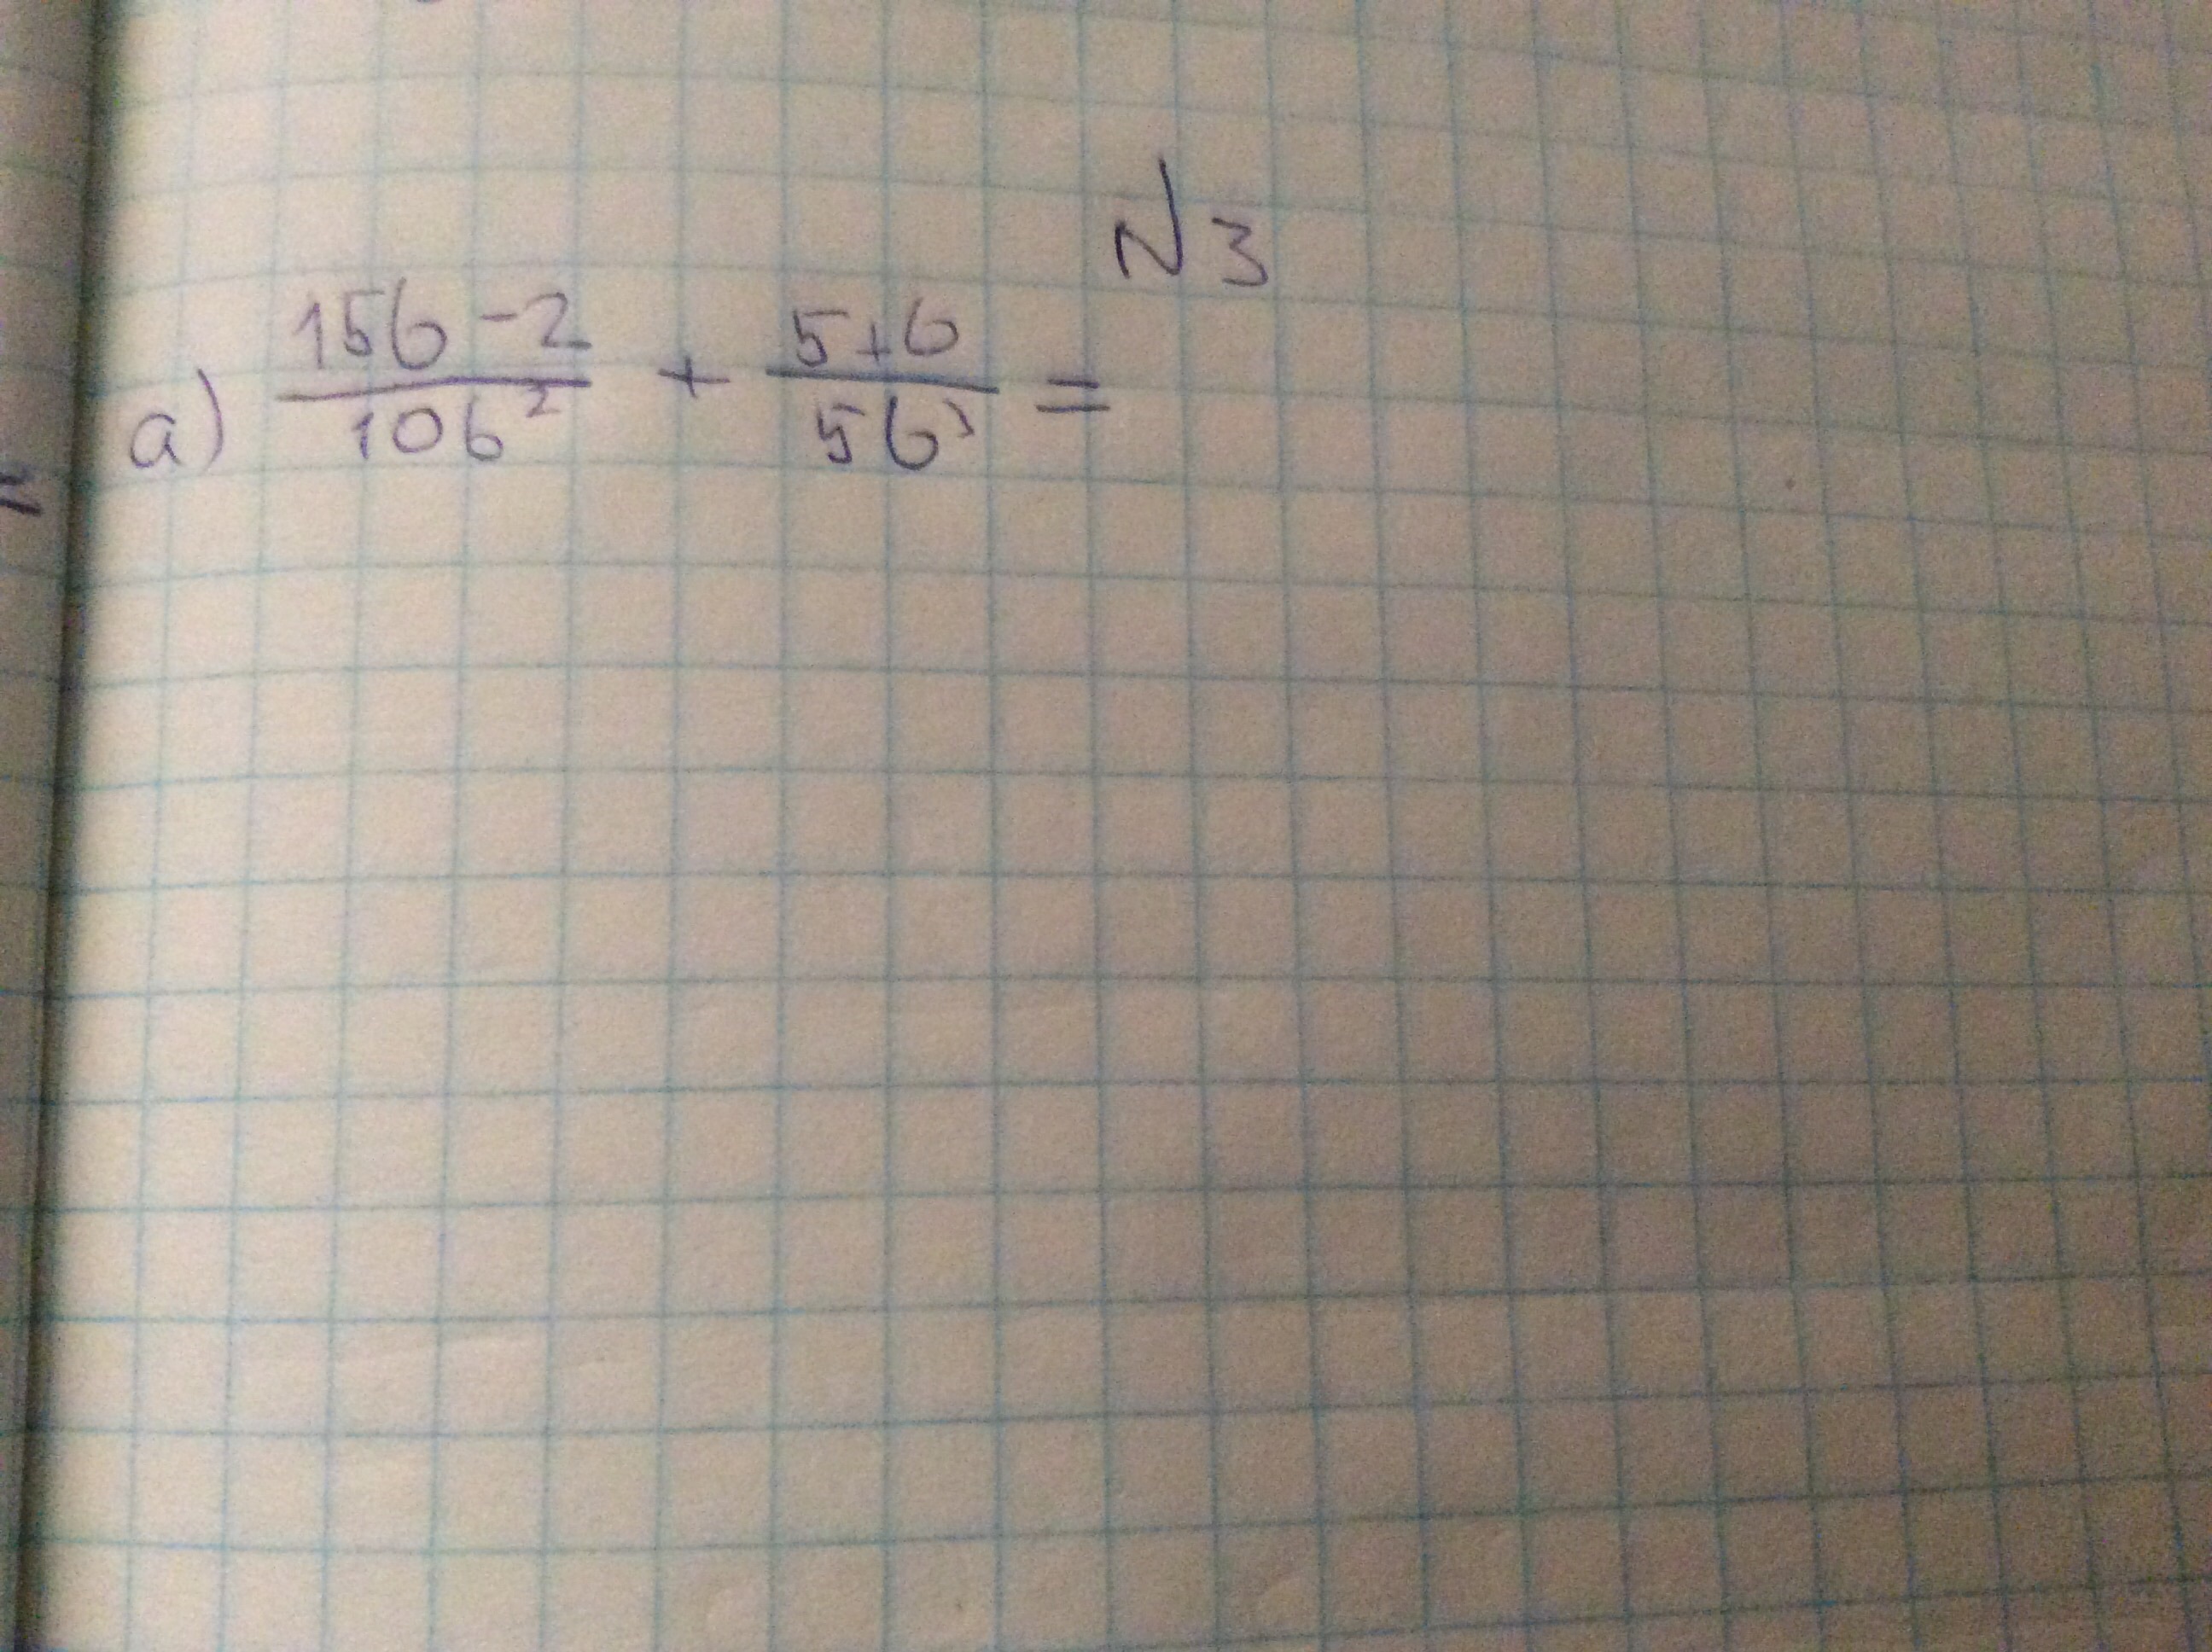 N3
a) (15b-2)/(10b²) + (5+b)/(5b³) =